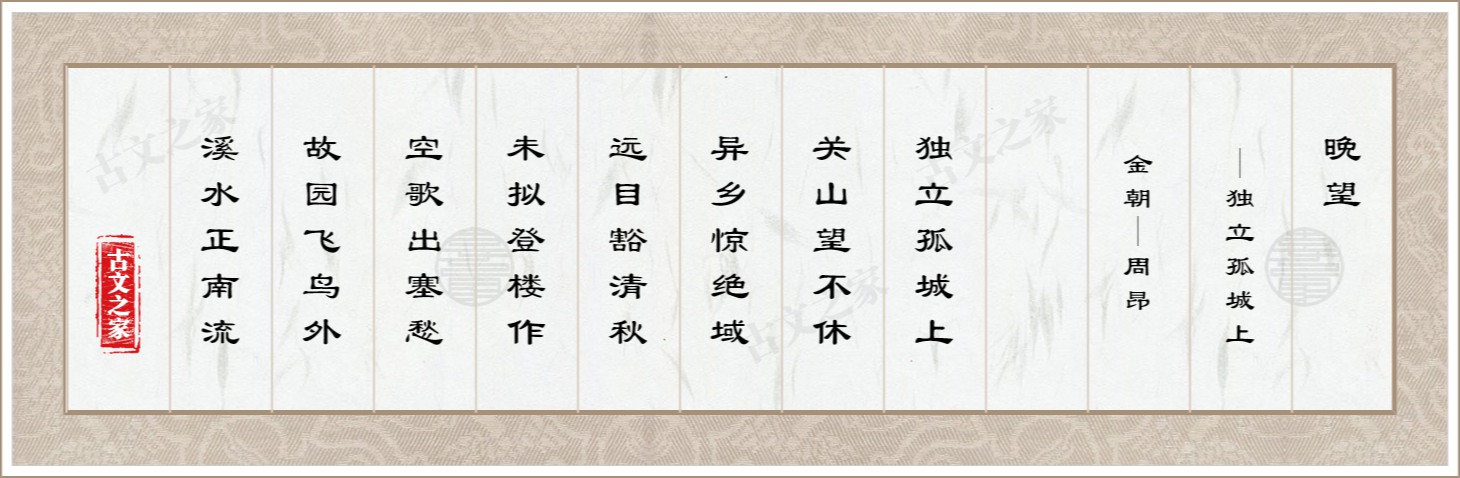 晚望
—独立孤城上
金朝—周昂
独立孤城上
关山望不休
异乡惊绝域
远目豁清秋
未拟登楼作
空歌出塞愁
故园飞鸟外
溪水正南流
古文之家
古文之家
古文之家
古文之家